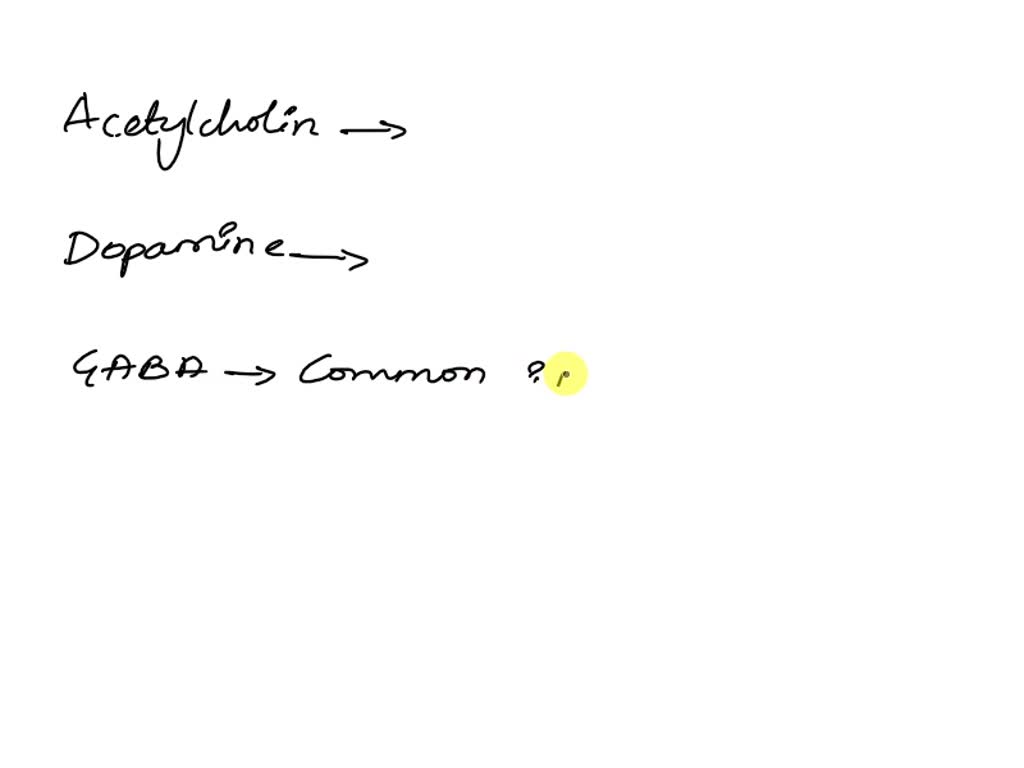 Acetylcholin →
Dopamine →
GABA → Common